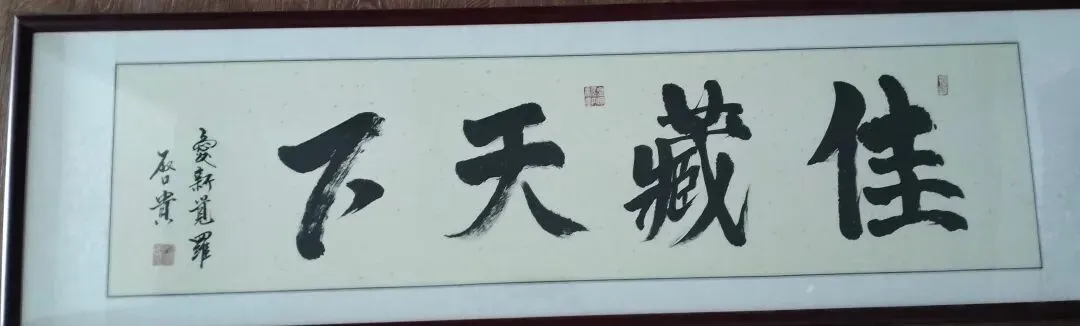 佳藏天下
愛新覚羅
啓貴